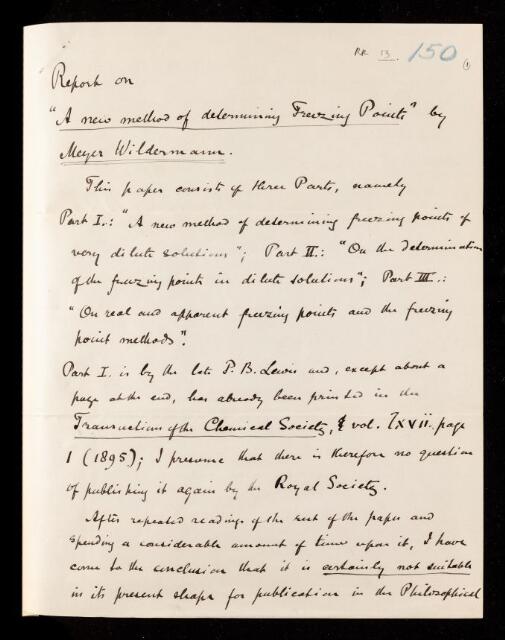 RR 13. 150 (1
Report on
"A new method of determining Freezing Points" by
Meyer Wildermann.
This paper consists of three Parts, namely
Part I.: "A new method of determining freezing points of
very dilute solutions"; Part II.: "On the determination
of the freezing points in dilute solutions"; Part III.:
"On real and apparent freezing points and the freezing
point methods".
Part I. is by the late P. B. Lewis and, except about a
page at the end, has already been printed in the
Transactions of the Chemical Society, vol. lxvii. page
1 (1895); I presume that there is therefore no question
of publishing it again by the Royal Society.
After repeated readings of the rest of the paper and
spending a considerable amount of time upon it, I have
come to the conclusion that it is certainly not suitable
in its present shape for publication in the Philosophical